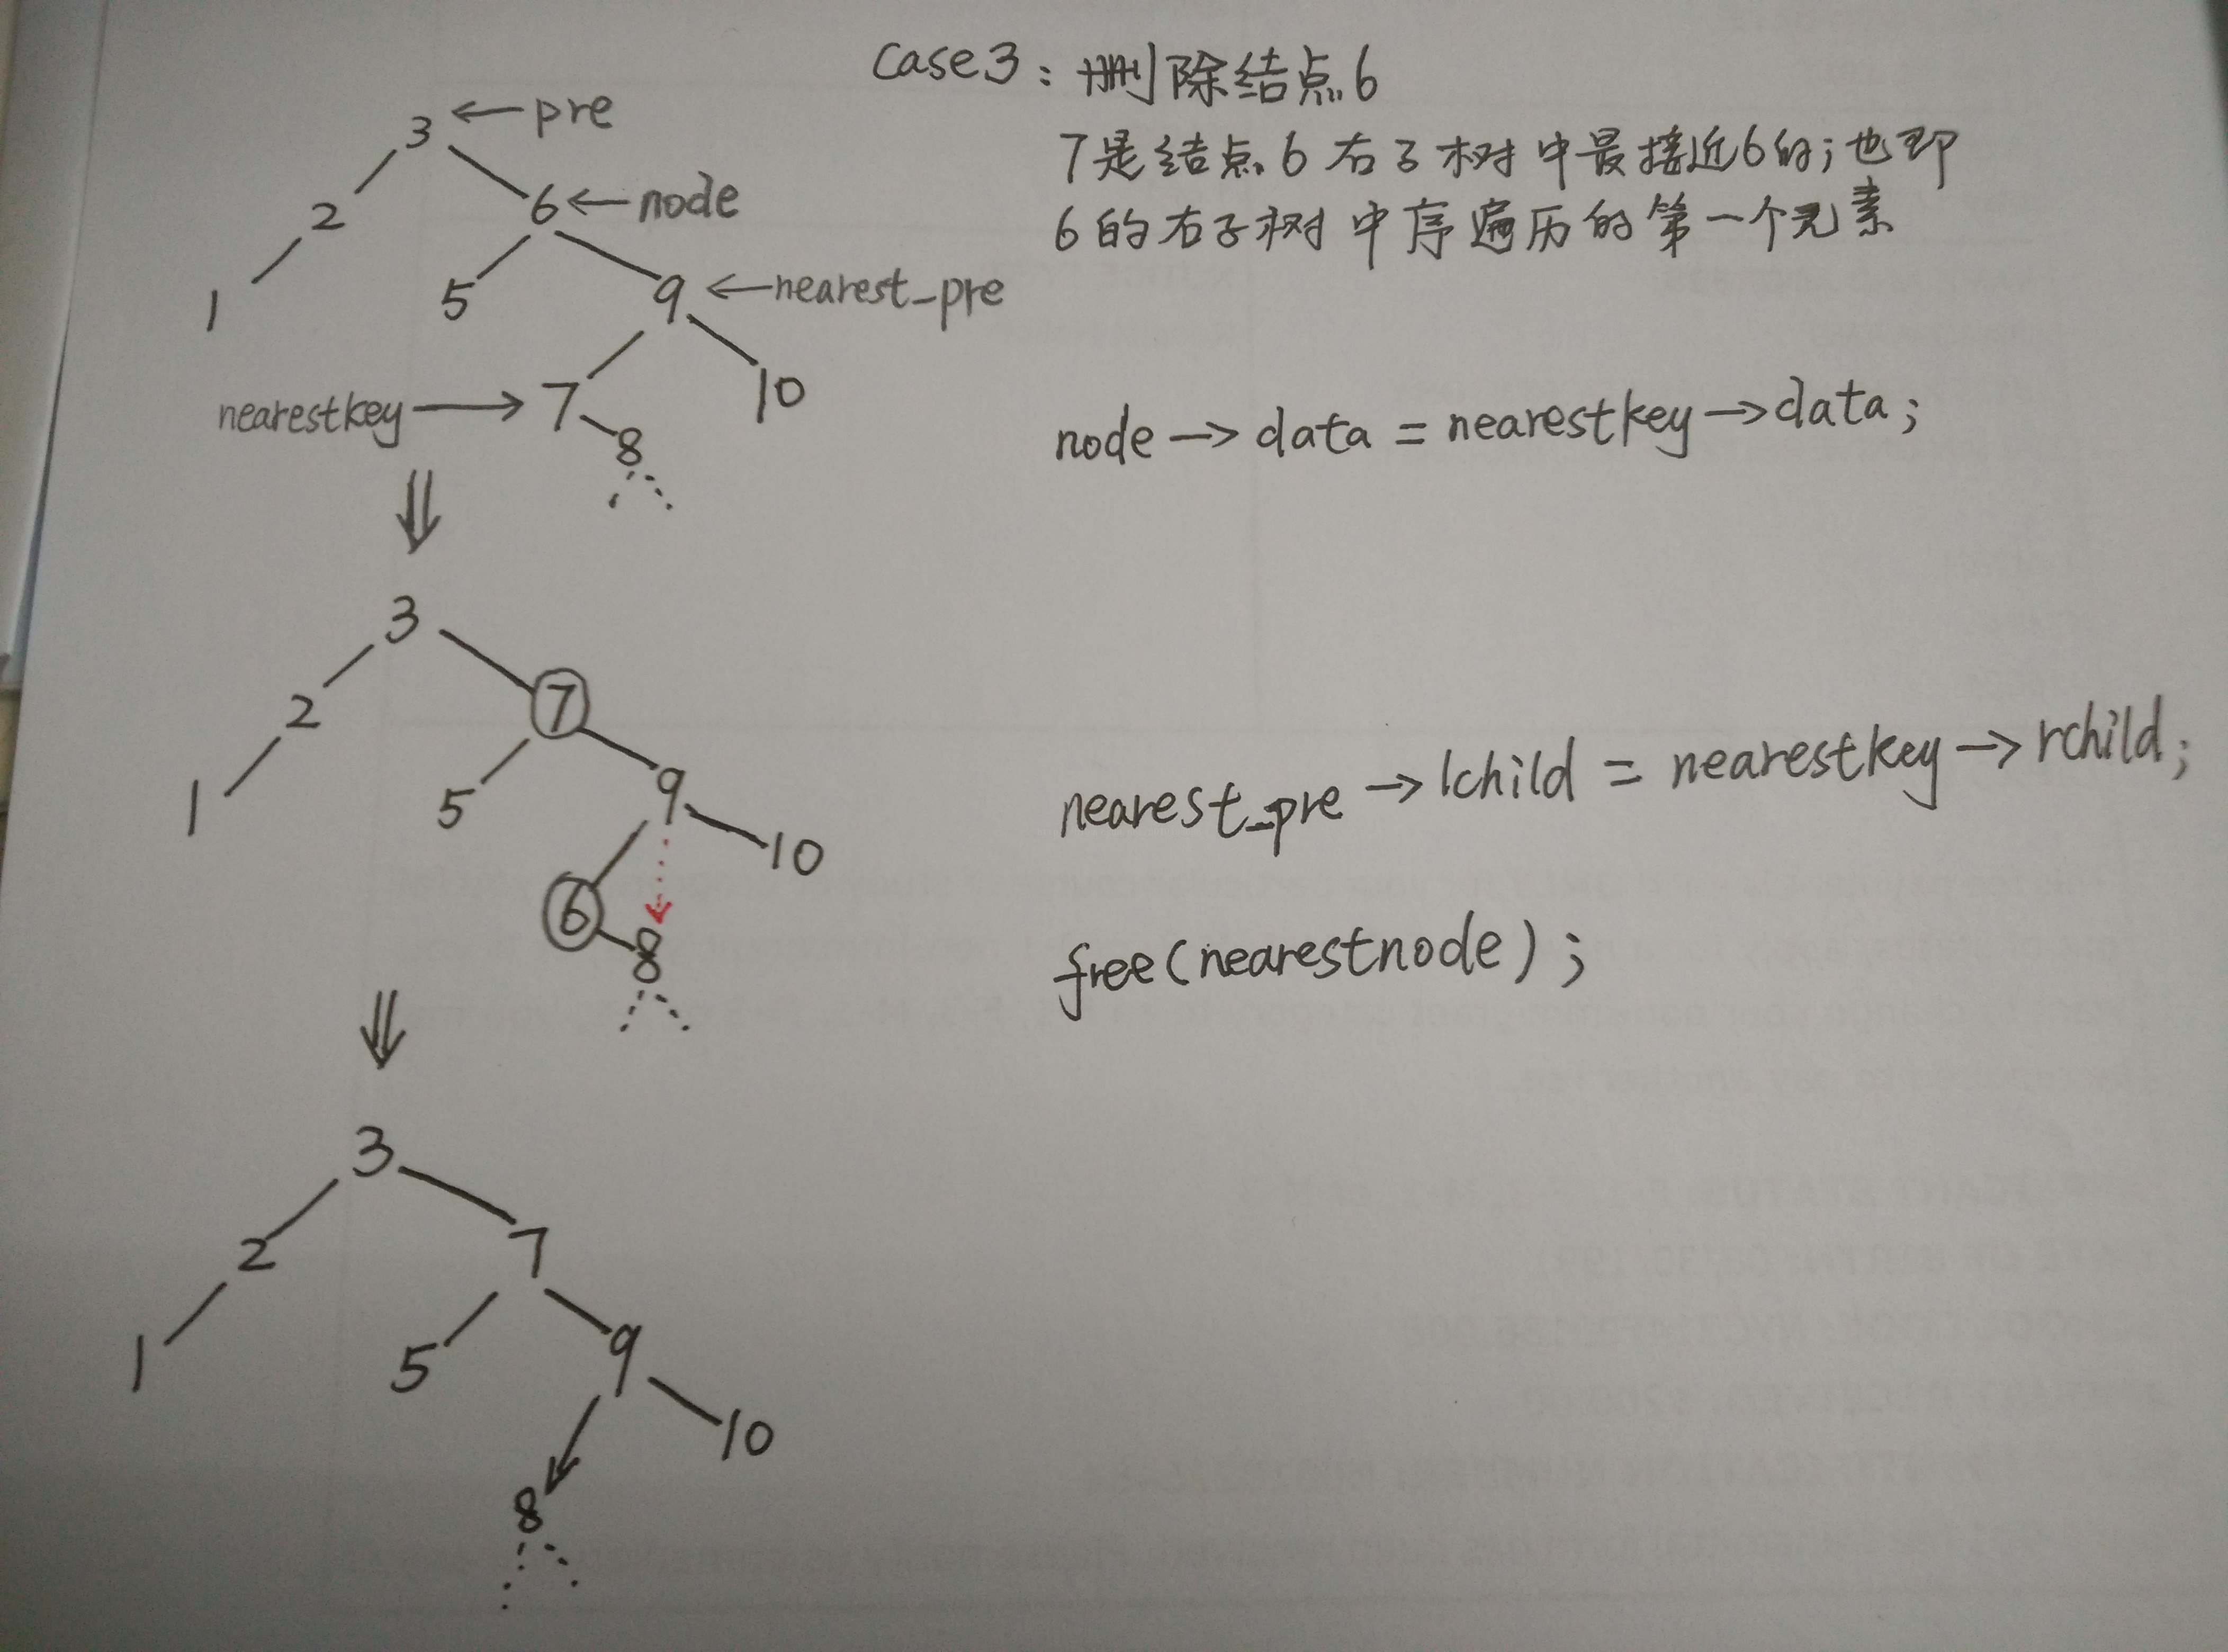 Case3：删除结点6
7是结点6右子树中最接近6的；也即
6的右子树中序遍历的第一个元素
3 ← pre
2 6 ← node
1 5 9 ← nearest_pre
nearestkey → 7 10
8
node → data = nearestkey → data;
3
2 7
1 5 9
10
6 8
nearest_pre → lchild = nearestkey → rchild;
free(nearestnode);
3
2 7
1 5 9
10
8